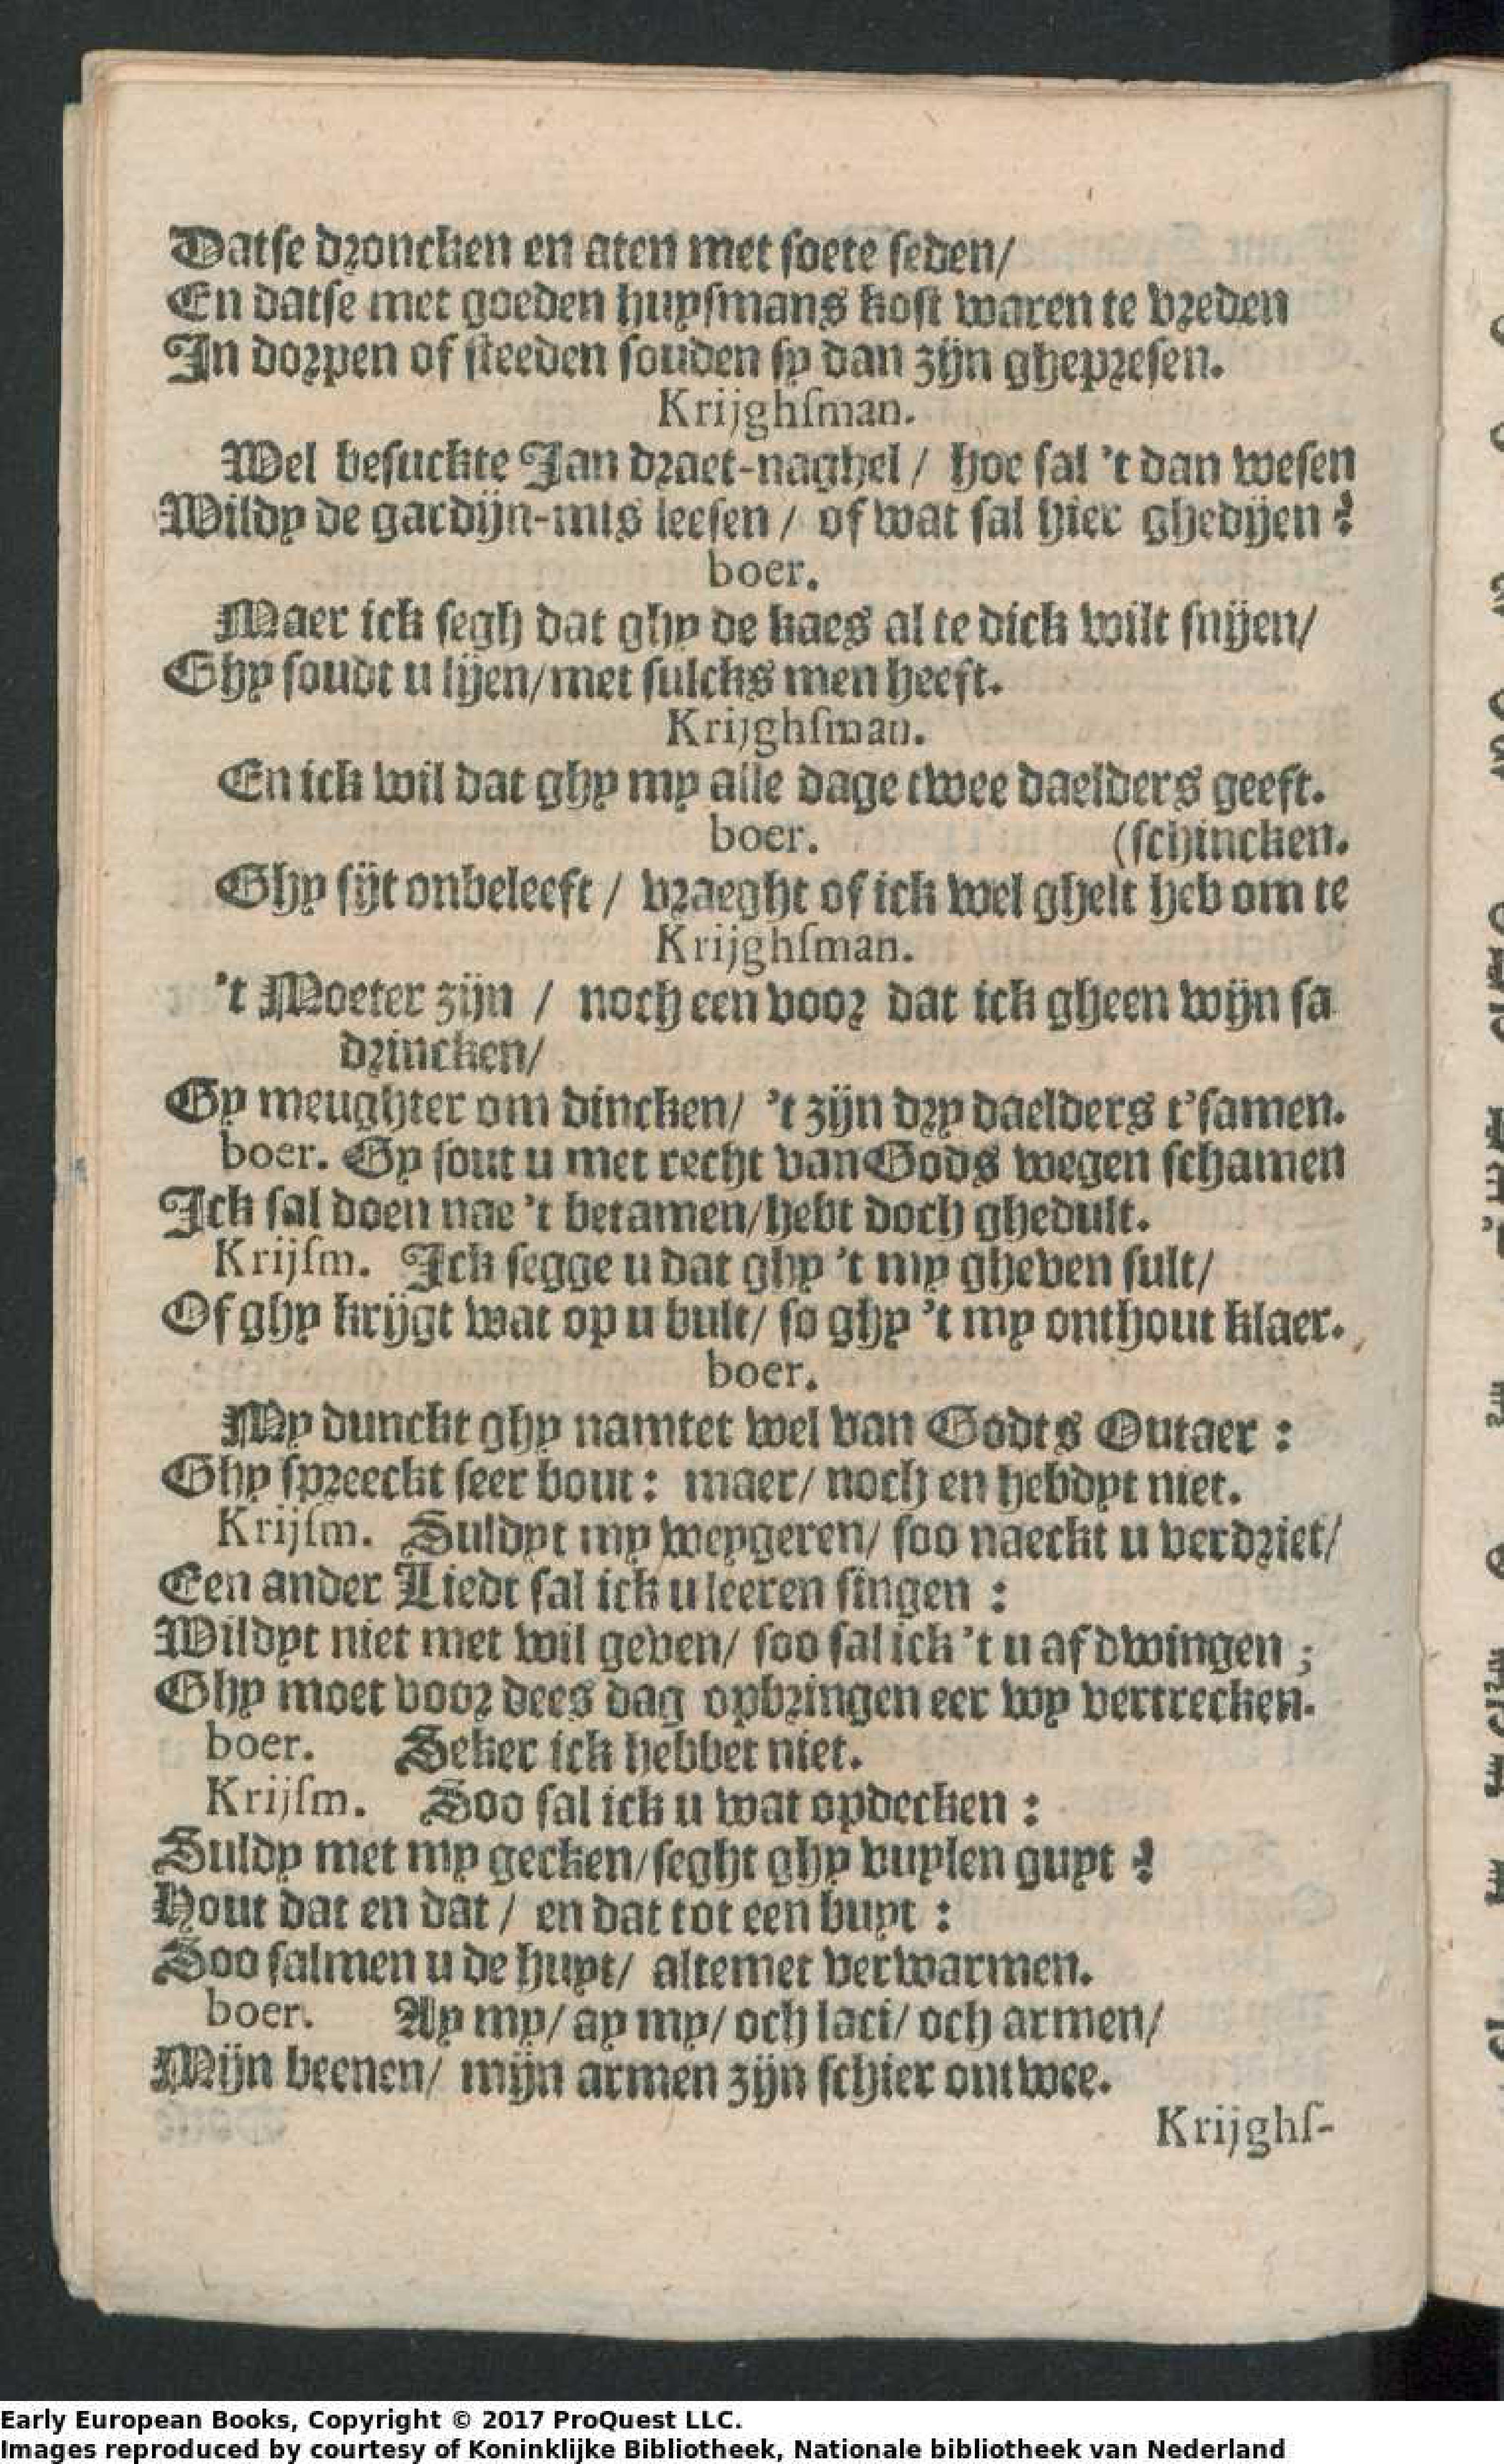 Datse droncken en aten met soete seden/
En datse met goeden huysmans kost waren te vreden
In dorpen of steeden souden sy dan zijn ghepresen.
Krijghſman.
Wel besuckte Jan draet-naghel / hoe sal 't dan wesen
Wildy de gardijn-mis leesen / of wat sal hier ghedijen?
boer.
Maer ick segh dat ghy de kaes al te dick wilt snijen/
Ghy soudt u lijen/met sulcks men heeft.
Krijghſman.
En ick wil dat ghy my alle dage twee daelders geeft.
boer. (schincken.
Ghy sijt onbeleeft / vraeght of ick wel ghelt heb om te
Krijghſman.
't Moeter zijn / noch een voor dat ick gheen wijn sa
drincken/
Gy meughter om dincken/ 't zijn dry daelders t'samen.
boer. Gy sout u met recht van Gods wegen schamen
Ick sal doen nae 't betamen/hebt doch ghedult.
Krijſm. Ick segge u dat ghy 't my gheven sult/
Of ghy krijgt wat op u bult/ so ghy 't my onthout klaer.
boer.
My dunckt ghy namtet wel van Godts Outaer:
Ghy spreeckt seer bout: maer/ noch en hebdyt niet.
Krijſm. Suldyt my weygeren/ soo naeckt u verdriet/
Een ander Liedt sal ick u leeren singen:
Wildyt niet met wil geven/ soo sal ick 't u af dwingen;
Ghy moet voor dees dag opbringen eer wy vertrecken.
boer. Seker ick hebbet niet.
Krijſm. Soo sal ick u wat opdecken:
Suldy met my gecken/seght ghy vuylen guyt?
Hout dat en dat / en dat tot een buyt:
Soo salmen u de huyt/ altemet verwarmen.
boer. Ay my/ ay my/ och laci/ och armen/
Mijn beenen/ mijn armen zijn schier ontwee.
Krijghſ-
Early European Books, Copyright © 2017 ProQuest LLC.
Images reproduced by courtesy of Koninklijke Bibliotheek, Nationale bibliotheek van Nederland